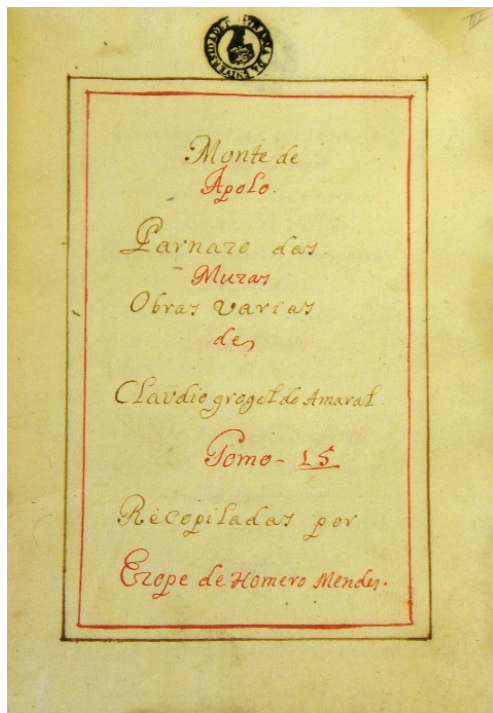 III
Monte de
Apolo.
Parnazo das
Muzas
Obras varias
de
Claudio grogel do Amaral
Tomo - 15
Recopiladas por
Ezope de Homero Mendes.